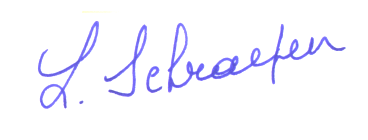 L. Schraepen